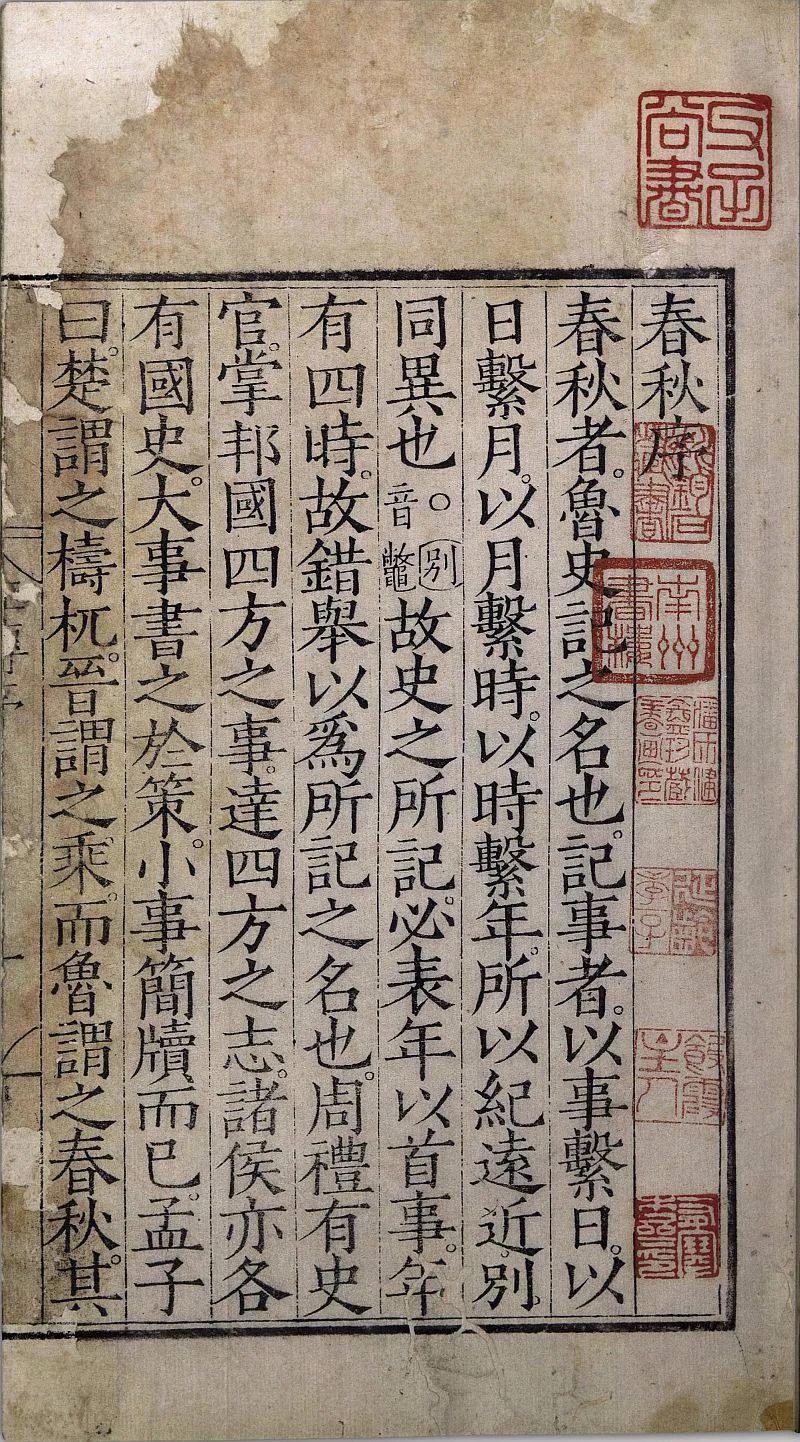 春秋序
春秋者。魯史記之名也。記事者。以事繫日。以
日繫月。以月繫時。以時繫年。所以紀遠近。別
同異也。○別音鼈故史之所記。必表年以首事。年
有四時。故錯舉以爲所記之名也。周禮有史
官。掌邦國四方之事。達四方之志。諸侯亦各
有國史。大事書之於策。小事簡牘而已。孟子
曰。楚謂之檮杌。晉謂之乘。而魯謂之春秋。其
南州書樓